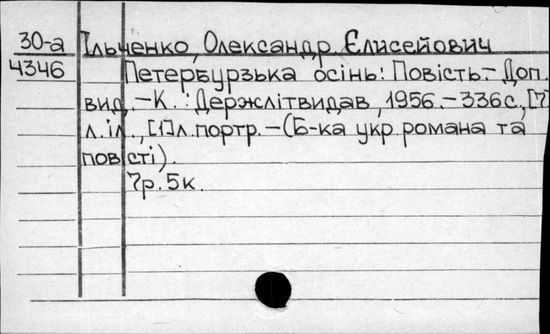 30-а Ільченко, Олександр Єлисейович
4346 Петербурзька осінь: Повість.- Доп.
вид.-К.: Держлітвидав, 1956.-336с., [7]
л.іл., [1]л.портр.-(Б-ка укр.романа та
повісті).
7р.5к.